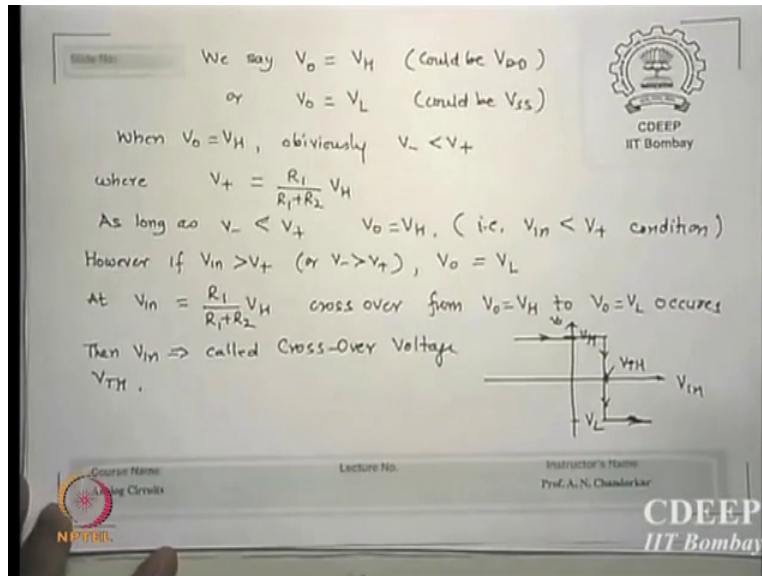 Slide No:
We say V₀ = V_H (Could be V_DD)
or V₀ = V_L (could be V_SS)
When V₀ = V_H, obiviously V₋ < V₊
where V₊ = R₁/(R₁+R₂) V_H
As long as V₋ < V₊ V₀ = V_H. (i.e. Vin < V₊ condition)
However if Vin > V₊ (or V₋ > V₊), V₀ = V_L
At Vin = R₁/(R₁+R₂) V_H cross over from V₀ = V_H to V₀ = V_L occures
Then Vin ⇒ called Cross-Over Voltage
V_TH.
V₀
V_H
V_TH
V_IN
V_L
CDEEP
IIT Bombay
Course Name
Analog Circuits
Lecture No.
Instructor's Name
Prof. A. N. Chandorkar
NPTEL
CDEEP
IIT Bombay